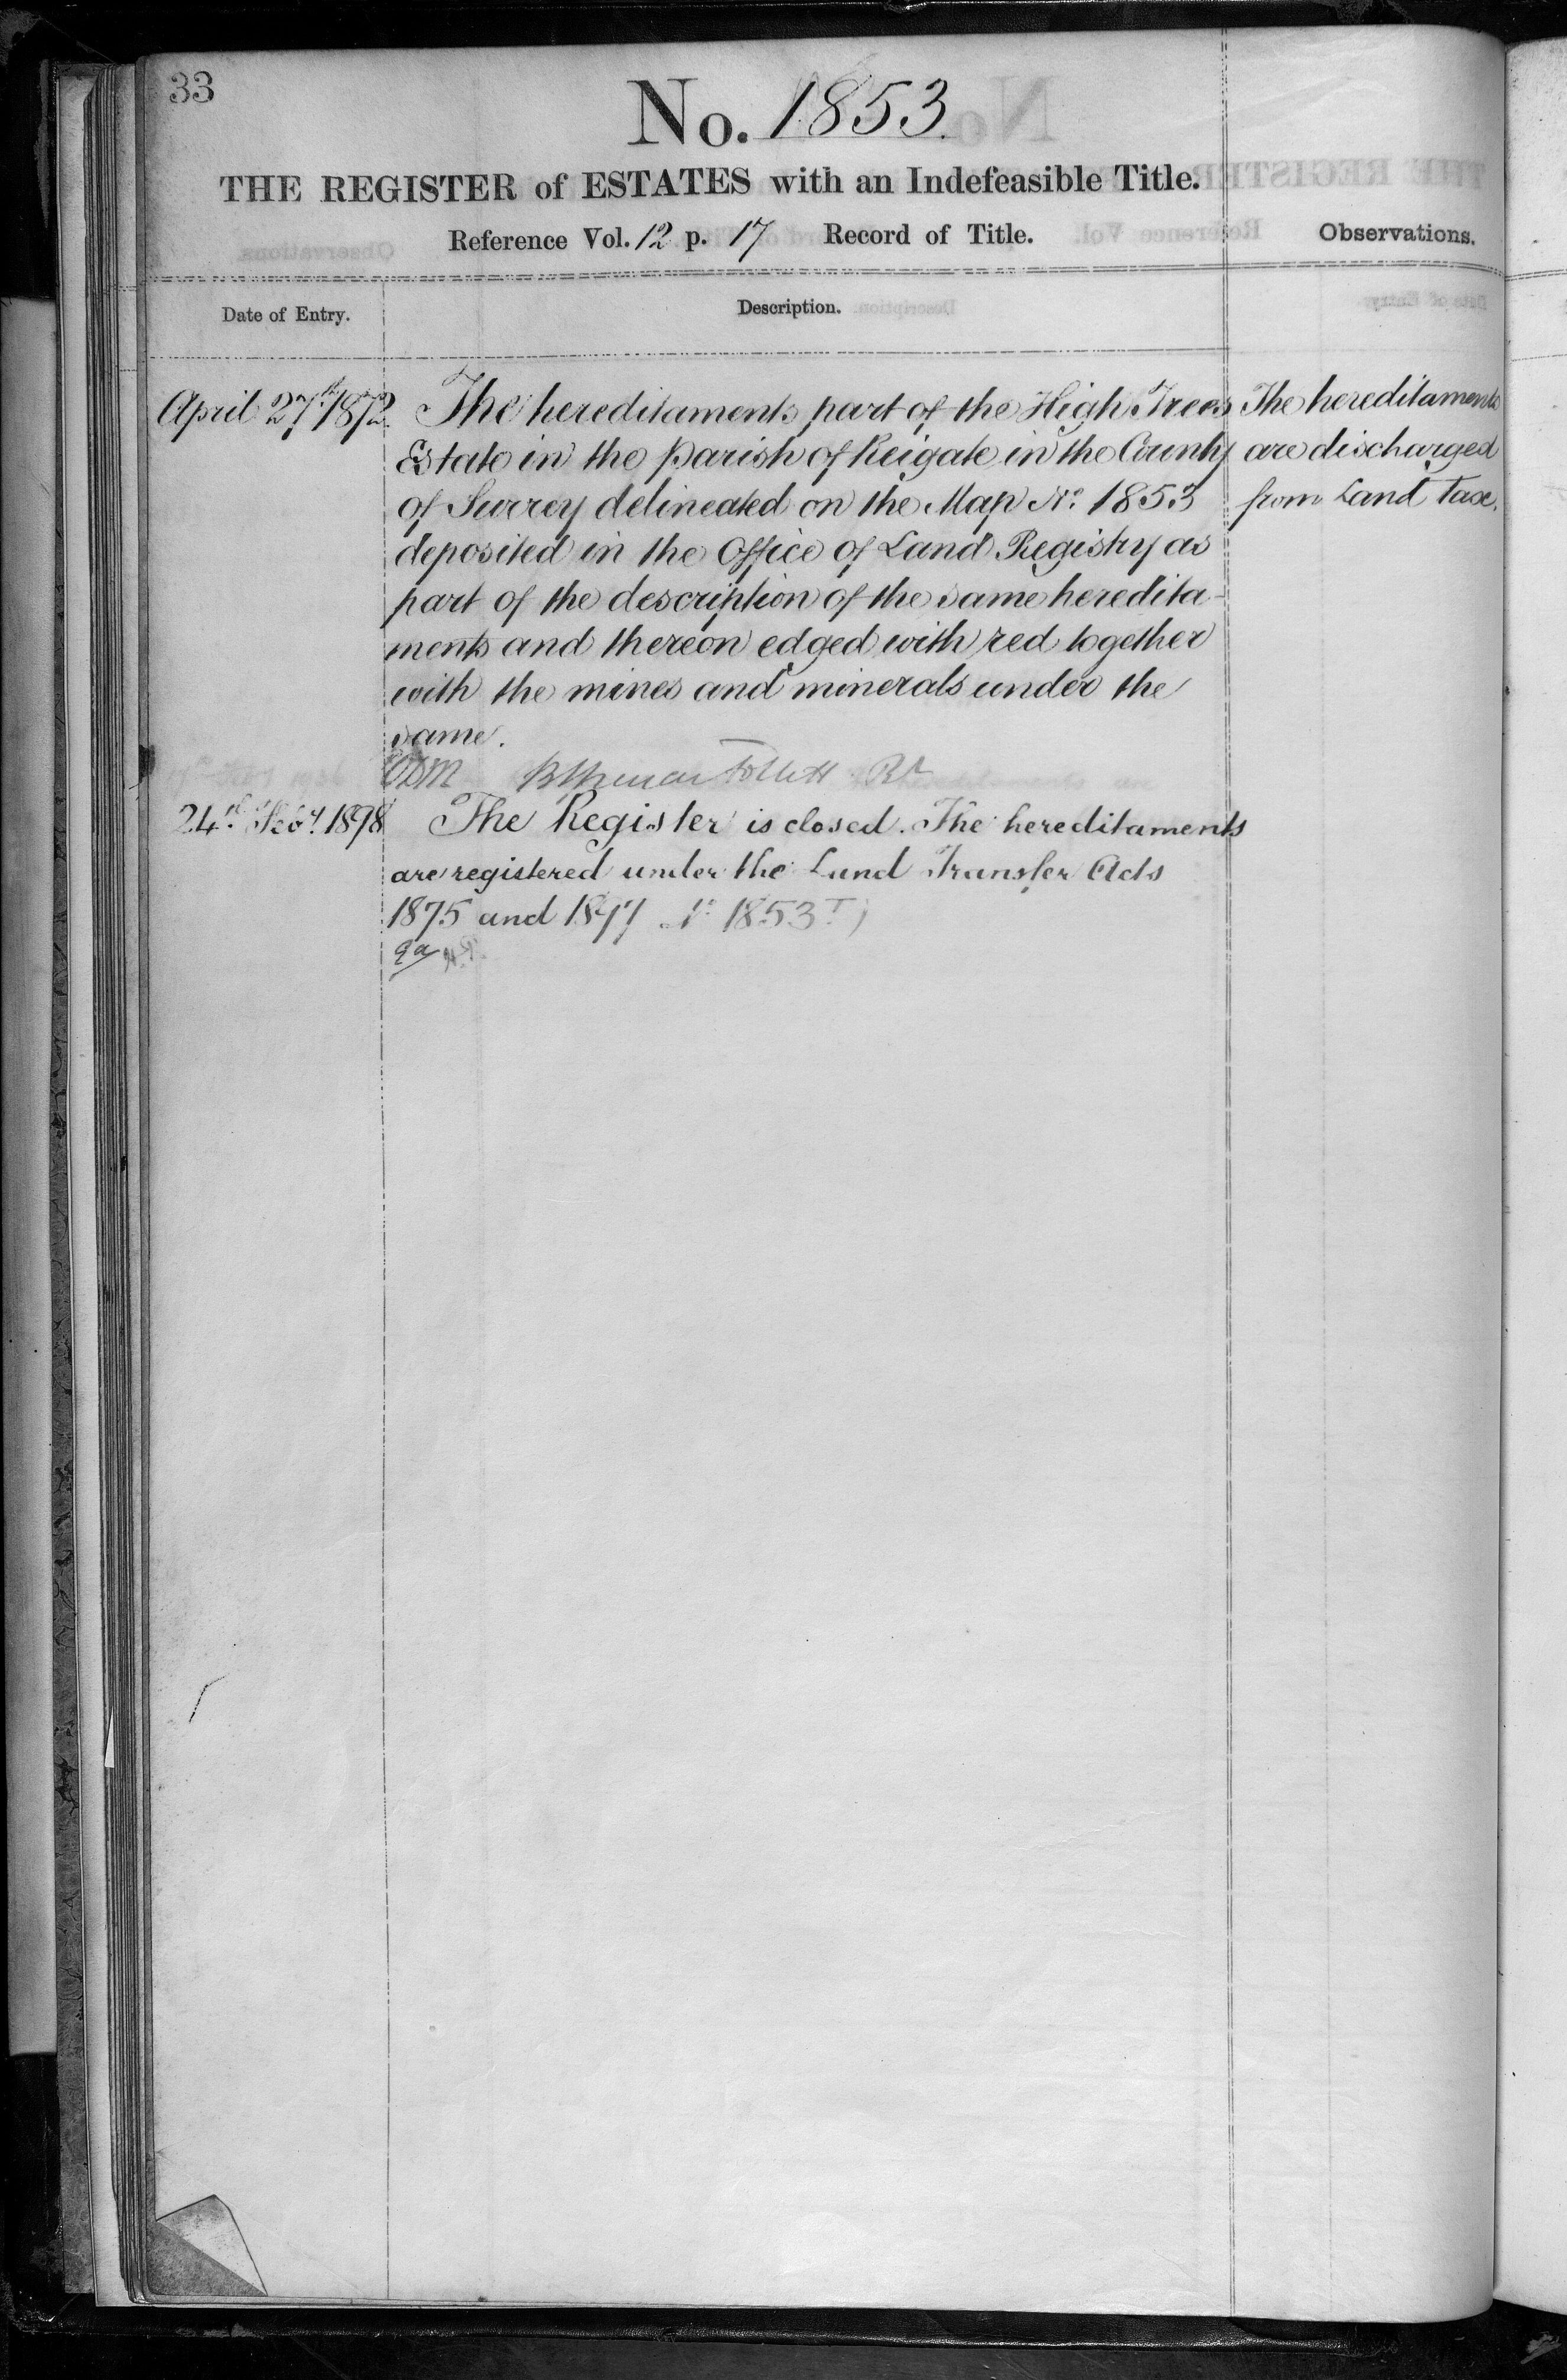 33
No. 1853.
THE REGISTER of ESTATES with an Indefeasible Title.
Reference Vol. 12 p. 17 Record of Title.
Observations.
Date of Entry.
Description.
April 27th 1872
The hereditaments part of the High Trees
Estate in the Parish of Reigate in the County
of Surrey delineated on the Map No. 1853
deposited in the Office of Land Registry as
part of the description of the same heredita-
ments and thereon edged with red together
with the mines and minerals under the
same.
The hereditaments
are discharged
from Land Tax.
Follett
24th Feby. 1898
The Register is closed. The hereditaments
are registered under the Land Transfer Acts
1875 and 1897 No 1853